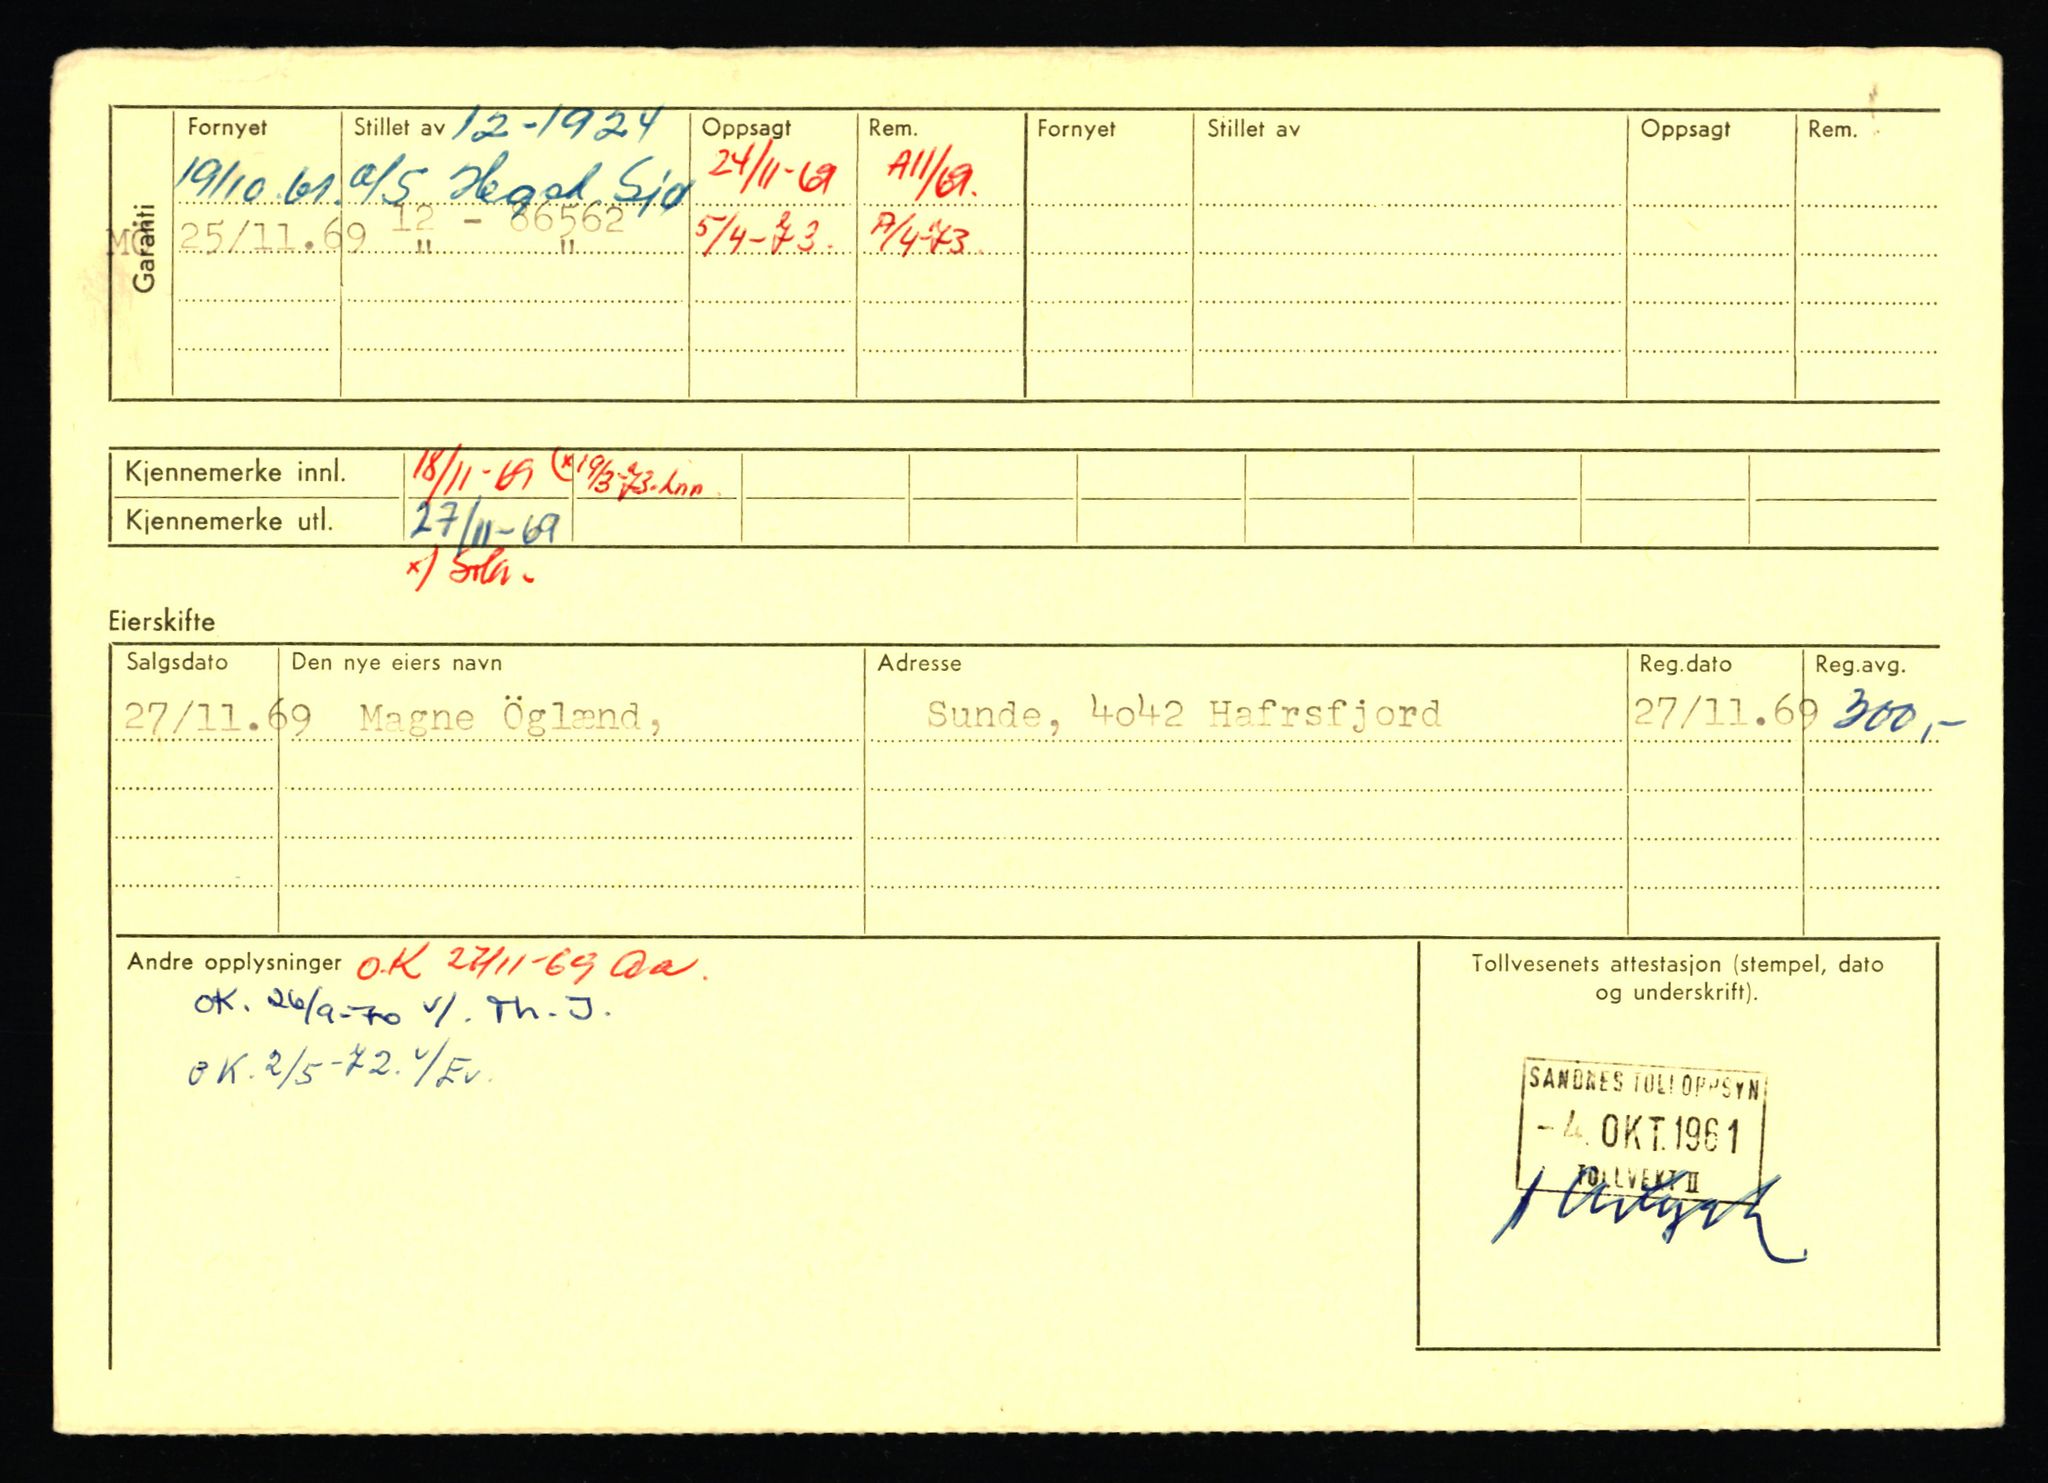 Garanti
Fornyet Stillet av 12-1924 Oppsagt Rem. Fornyet Stillet av Oppsagt Rem.
19/10.61. a/S 24/11-69 A11/69.
12 - 86562
MC 25/11.69 " " 5/4-73. A/4-73.
Kjennemerke innl. 18/11-69 (x 19/3-73.
Kjennemerke utl. 27/11-69
x) Sola.
Eierskifte
Salgsdato Den nye eiers navn Adresse Reg.dato Reg.avg.
27/11.69 Magne Öglænd, Sunde, 4o42 Hafrsfjord 27/11.69 300,-
Andre opplysninger O.K 27/11-69 Aa.
OK. 26/9-70 v/. Th. J.
OK. 2/5-72. v/Ev.
Tollvesenets attestasjon (stempel, dato
og underskrift).
SANDNES TOLLOPPSYN
-4. OKT. 1961
TOLLVEKT II